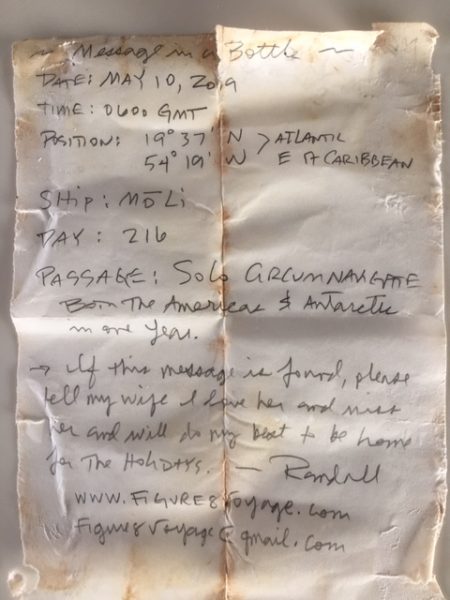 ~ Message in a Bottle ~
DATE: MAY 10, 2019
TIME: 0600 GMT
POSITION: 19° 37' N > ATLANTIC
54° 19' W E of CARIBBEAN
SHIP: MŌLI
DAY: 216
PASSAGE: Solo CIRCUMNAVIGATE
Both The Americas & Antarctic
in one year.
→ If this message is found, please
tell my wife I love her and miss
her and will do my best to be home
for The HOLIDAYS. — Randall
www.FIGURE8Voyage.com
Figure8Voyage@gmail.com